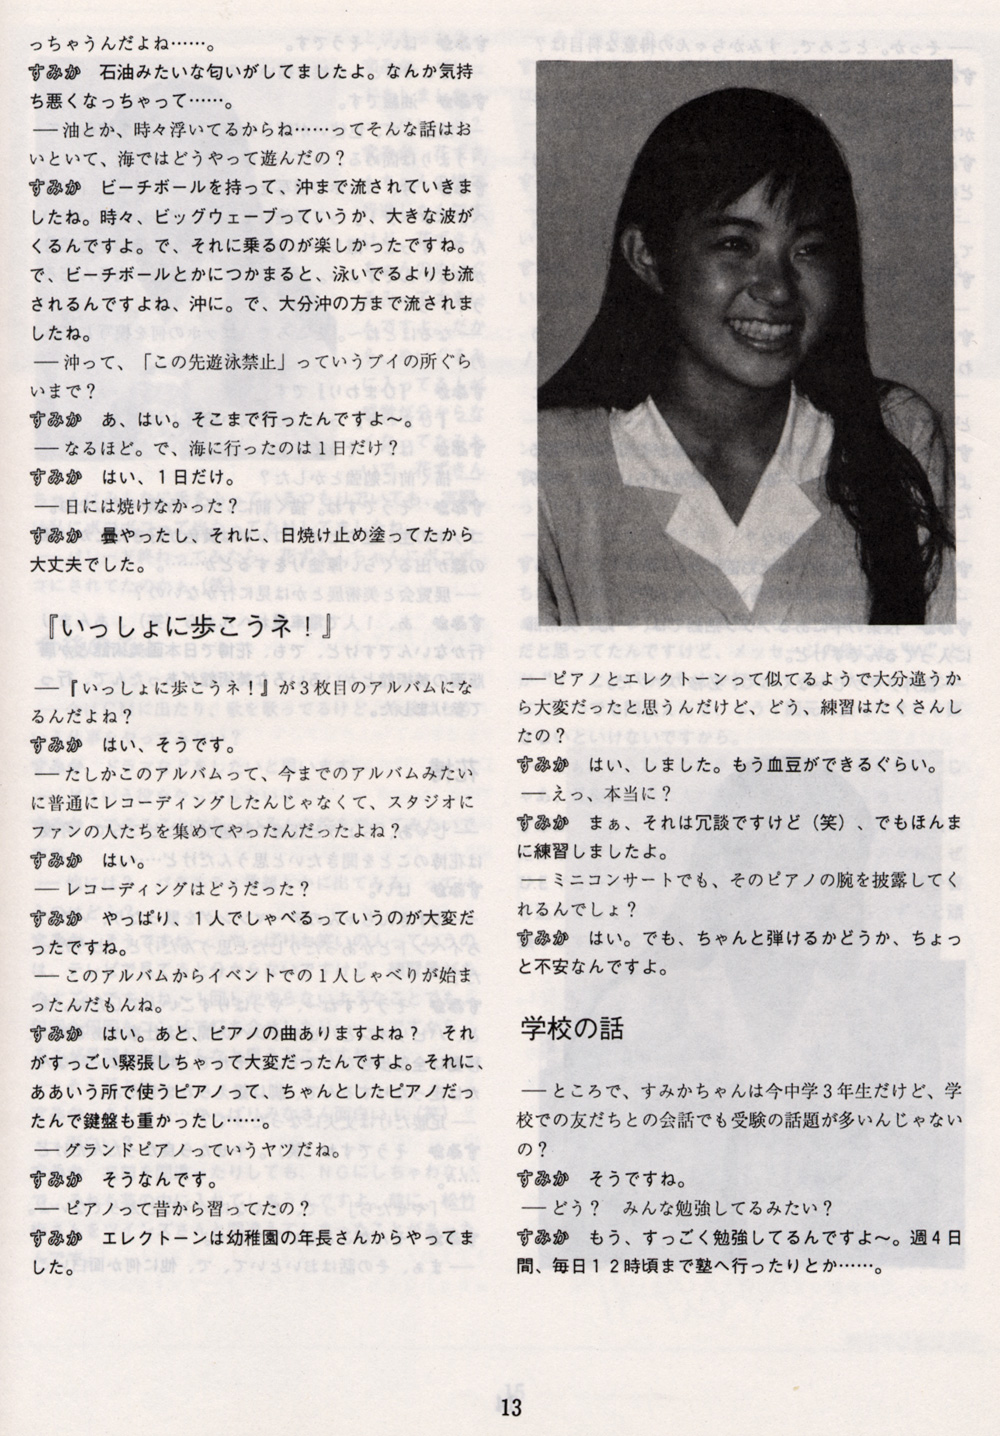 っちゃうんだよね……。
すみか　石油みたいな匂いがしてましたよ。なんか気持
ち悪くなっちゃって……。
――油とか、時々浮いてるからね……ってそんな話はお
いといて、海ではどうやって遊んだの？
すみか　ビーチボールを持って、沖まで流されていきま
したね。時々、ビッグウェーブっていうか、大きな波が
くるんですよ。で、それに乗るのが楽しかったですね。
で、ビーチボールとかにつかまると、泳いでるよりも流
されるんですよね、沖に。で、大分沖の方まで流されま
したね。
――沖って、「この先遊泳禁止」っていうブイの所ぐら
いまで？
すみか　あ、はい。そこまで行ったんですよ～。
――なるほど。で、海に行ったのは１日だけ？
すみか　はい、１日だけ。
――日には焼けなかった？
すみか　曇やったし、それに、日焼け止め塗ってたから
大丈夫でした。
『いっしょに歩こうネ！』
――『いっしょに歩こうネ！』が３枚目のアルバムにな
るんだよね？
すみか　はい、そうです。
――たしかこのアルバムって、今までのアルバムみたい
に普通にレコーディングしたんじゃなくて、スタジオに
ファンの人たちを集めてやったんだったよね？
すみか　はい。
――レコーディングはどうだった？
すみか　やっぱり、１人でしゃべるっていうのが大変だ
ったですね。
――このアルバムからイベントでの１人しゃべりが始ま
ったんだもんね。
すみか　はい。あと、ピアノの曲ありますよね？　それ
がすっごい緊張しちゃって大変だったんですよ。それに、
ああいう所で使うピアノって、ちゃんとしたピアノだっ
たんで鍵盤も重かったし……。
――グランドピアノっていうヤツだね。
すみか　そうなんです。
――ピアノって昔から習ってたの？
すみか　エレクトーンは幼稚園の年長さんからやってま
した。
――ピアノとエレクトーンって似てるようで大分違うか
ら大変だったと思うんだけど、どう、練習はたくさんし
たの？
すみか　はい、しました。もう血豆ができるぐらい。
――えっ、本当に？
すみか　まぁ、それは冗談ですけど（笑）、でもほんま
に練習しましたよ。
――ミニコンサートでも、そのピアノの腕を披露してく
れるんでしょ？
すみか　はい。でも、ちゃんと弾けるかどうか、ちょっ
と不安なんですよ。
学校の話
――ところで、すみかちゃんは今中学３年生だけど、学
校での友だちとの会話でも受験の話題が多いんじゃない
の？
すみか　そうですね。
――どう？　みんな勉強してるみたい？
すみか　もう、すっごく勉強してるんですよ～。週４日
間、毎日１２時頃まで塾へ行ったりとか……。
13